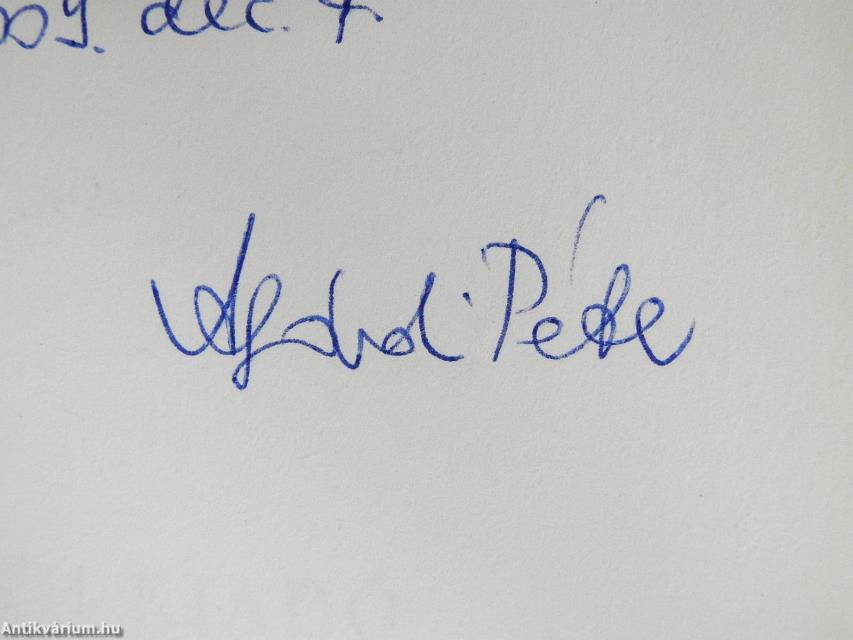 009. dec. 7.
Agárdi Péter
Antikvárium.hu